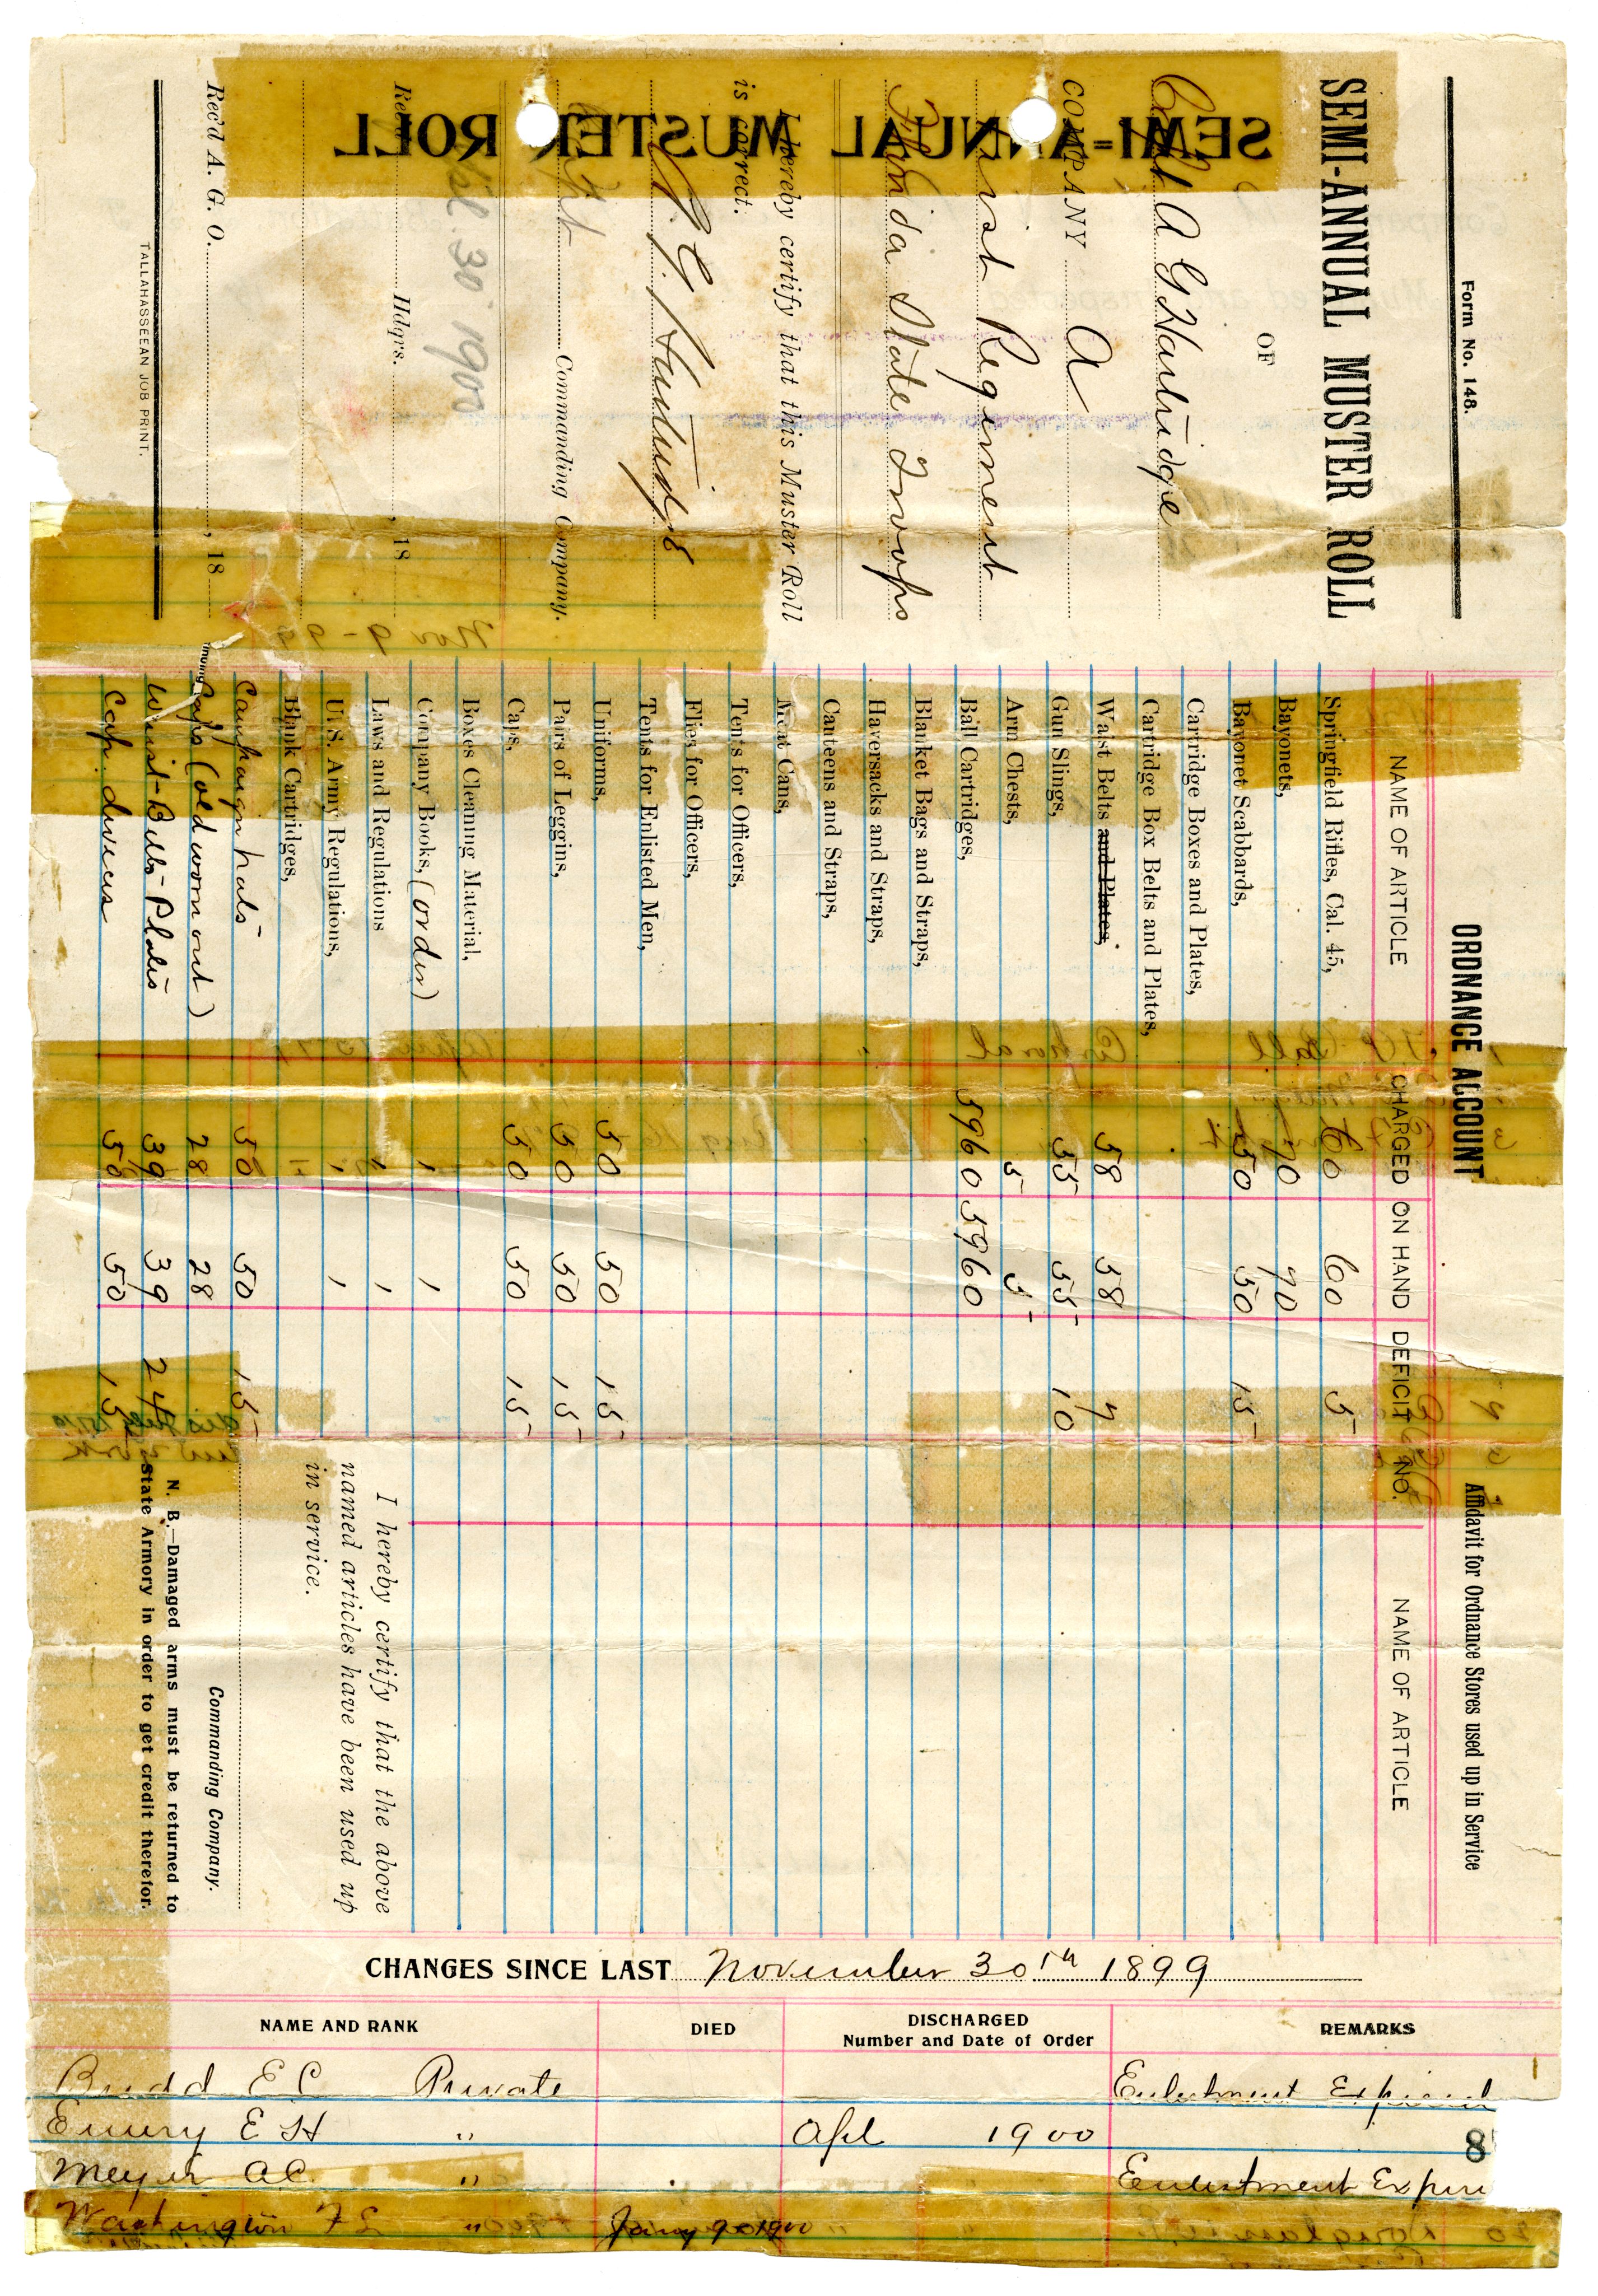 Form No. 148.
SEMI-ANNUAL MUSTER ROLL
OF
Capt A G Hartridge
COMPANY A
First Regiment
Florida State Troops
I hereby certify that this Muster Roll
is correct.
A. G. Hartridge
Capt Commanding Company.
Apl. 30 1900
Rec'd Hdqrs. , 18
Rec'd A. G. O. , 18
TALLAHASSEEAN JOB PRINT.
SEMI-ANNUAL MUSTER ROLL
Nov 9-99
ORDNANCE ACCOUNT
NAME OF ARTICLE CHARGED ON HAND DEFICIT
Springfield Rifles, Cal. 45, 60 60 5
Bayonets, 70 70
Bayonet Scabbards, 50 50 15
Cartridge Boxes and Plates,
Cartridge Box Belts and Plates,
Waist Belts and Plates, 58 58 7
Gun Slings, 55 55 10
Arm Chests, 5 5
Ball Cartridges, 5960 5960
Blanket Bags and Straps,
Haversacks and Straps,
Canteens and Straps,
Meat Cans,
Tents for Officers,
Flies for Officers,
Tents for Enlisted Men,
Uniforms, 50 50 15
Pairs of Leggins, 50 50 15
Caps, 50 50 15
Boxes Cleaning Material,
Company Books, (order) 1 1
Laws and Regulations 1 1
U. S. Army Regulations, 1 1
Blank Cartridges,
Campaign hats 50 50 15
Caps (old worn out) 28 28
Waist-Belts-Plates 39 39 24
Cap devices 50 50 15
Affidavit for Ordnance Stores used up in Service
NO. NAME OF ARTICLE
I hereby certify that the above
named articles have been used up
in service.
Commanding Company.
N. B.—Damaged arms must be returned to
State Armory in order to get credit therefor.
CHANGES SINCE LAST November 30th 1899
NAME AND RANK DIED DISCHARGED REMARKS
Number and Date of Order
Budd E C Private Enlistment Expired
Emery E H " Apl 1900
8
Meyer A C. " Enlistment Expire
Washington F L "